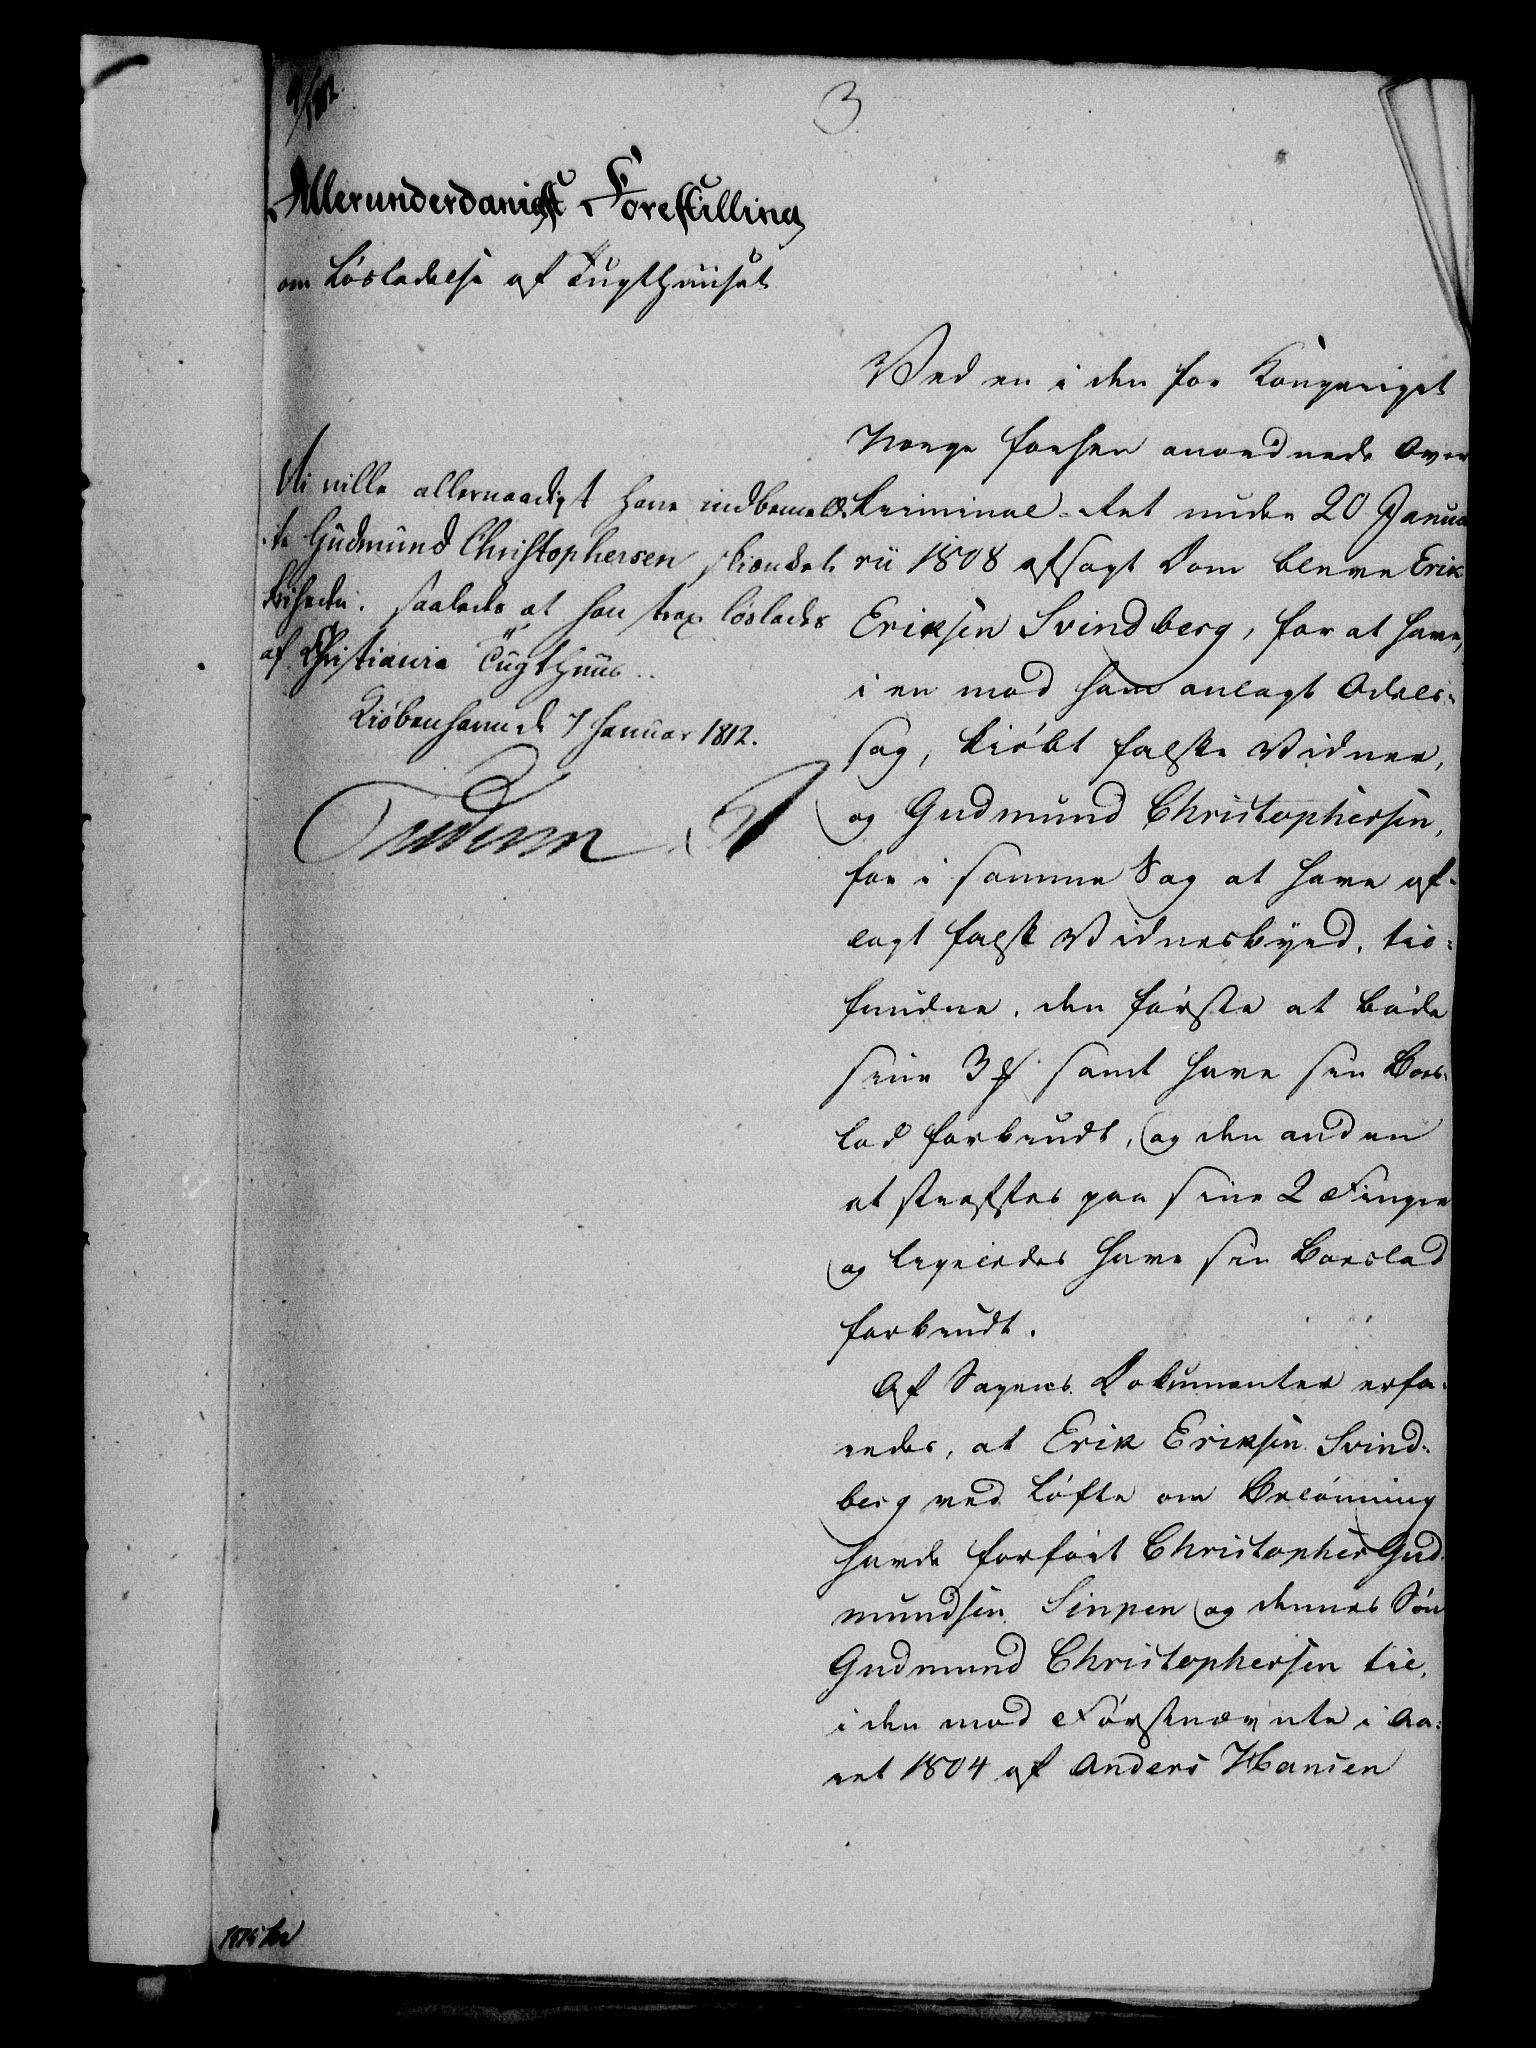 3
Allerunderdanigst Forestilling
om Løsladelse af Tugthuuset
Vi ville allernaadigst have indbemeld-
te Gudmund Christophersen skiænket
Friheden, saaledes at han strax løslades
af Christiania Tugthuus.
Kiøbenhavn d. 7 Januar 1812.
Frederik R
Ved en i den for Kongeriget
Norge forhen anordnede Over
Kriminal-Ret under 20 Janua
rii 1808 afsagt Dom bleve Erik
Eriksen Svindberg, for at have,
i en mod ham anlagt Odels-
sag, kiøbt falske Vidner,
og Gudmund Christophersen,
for i samme Sag at have af-
lagt falsk Vidnesbyrd, til-
fundne, den første at bøde
sine 3 samt have sin Boes-
lod forbrudt, og den anden
at straffes paa sine 2 Fingre
og ligeledes have sin Boeslod
forbrudt.
Af Sagens Dokumenter erfa-
redes, at Erik Eriksen Svind-
berg ved Løfte om Belønning
havde forført Christopher Gud-
mundsen Sinpen og dennes Søn
Gudmund Christophersen til,
i den mod Førstnævnte i Aa-
ret 1804 af Anders Hansen